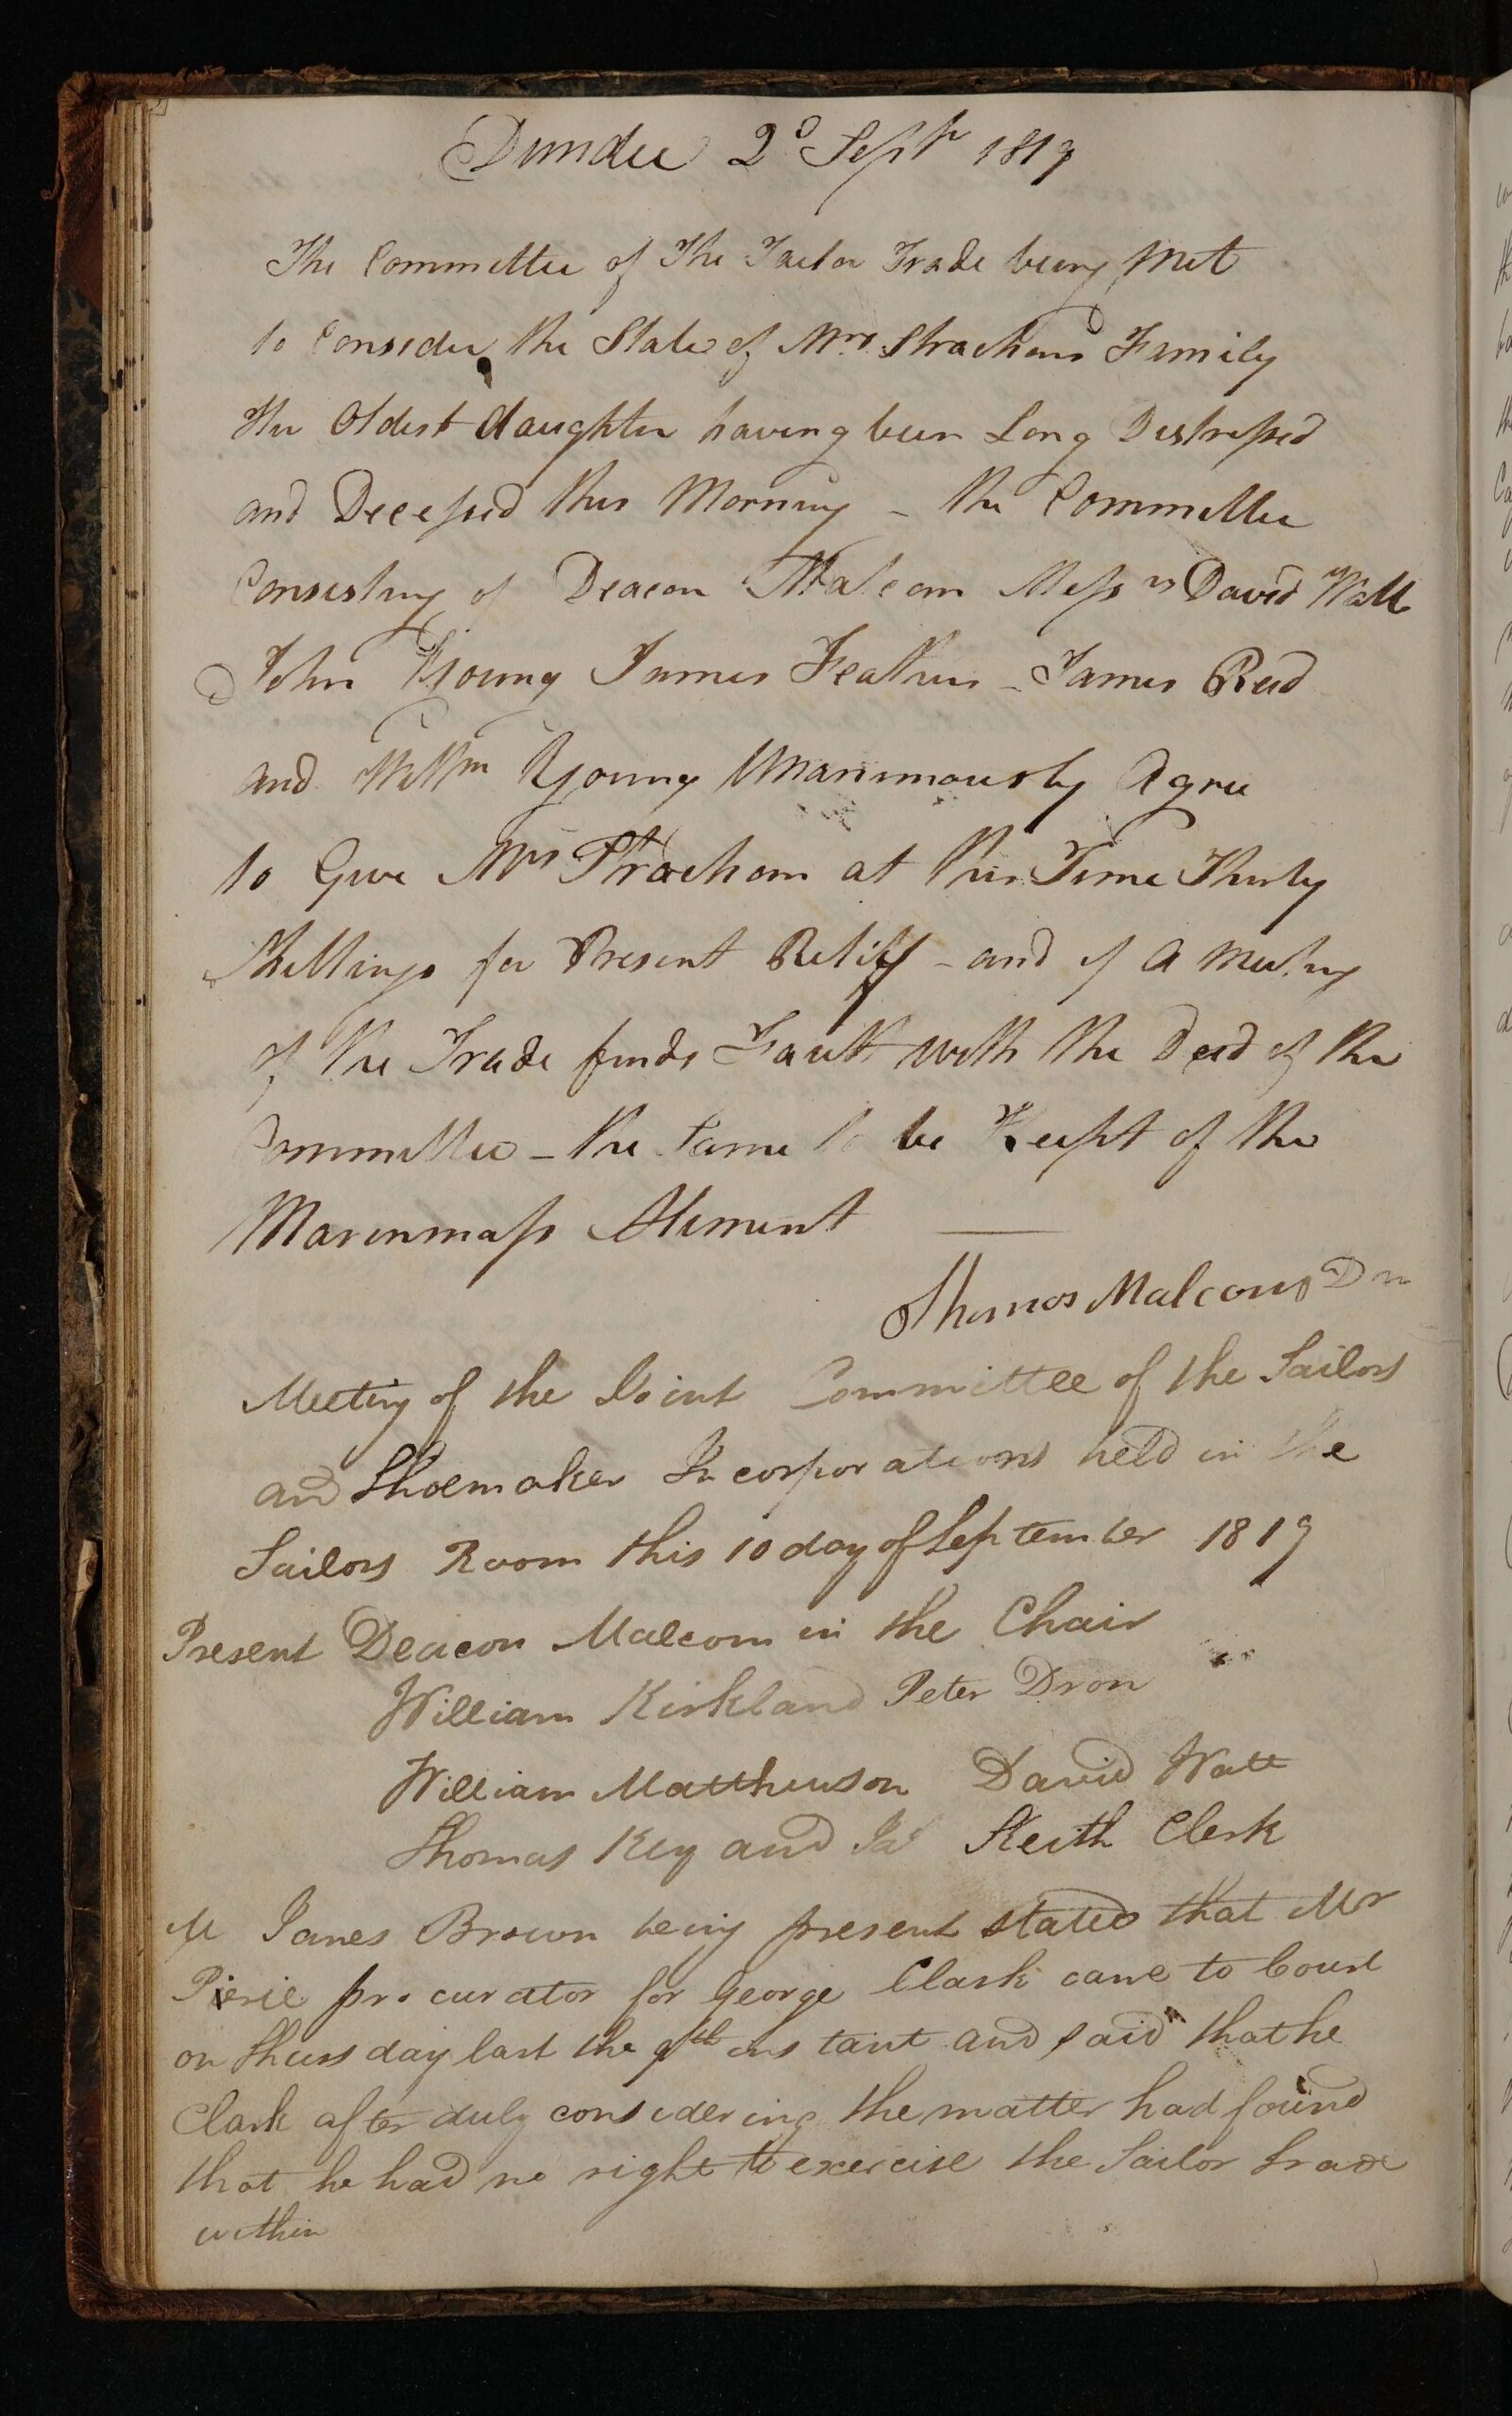 Dundee 2d Sepr 1819
The Committee of The Taelor Trade being Met
to Consider the State of Mrs Strachans Family
Her Oldest daughter having been Long Distressed
and Decessed this Morning – the Committee
Consisting of Deacon Malcom Messrs David Watt
John Young James Feathers – James Reid
and Willm Young Unanimously Agree
to Give Mrs Strachan at this Time Thirty
Shillings for Present Relieff – and if A Meeting
of the Trade finds Fault with the Deed of the
Committee – the Same to be Keept of the
Martinmass Aliment
Thomas Malcom Dn
Meeting of the Joint Committee of the Tailors
and Shoemaker Incorporations held in the
Tailors Room this 10 day of September 1819
Present Deacon Malcom in the Chair
William Kirkland Peter Dron
William Matthewson David Watt
Thomas Key and Jas Keith Clerk
Mr James Brown being present stated that Mr
Pirie procurator for George Clark came to Court
on Thursday last the 9th instant and said that he
Clark after duly considering the matter had found
that he had no right to exercise the Tailor trade
within